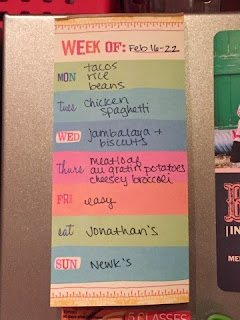 WEEK OF: Feb. 16-22
MON tacos
rice
beans
tues chicken
spaghetti
WED jambalaya +
biscuits
thurs meatloaf
au gratin potatoes
cheesey broccoli
FRI easy
sat Jonathan's
SUN Newk's